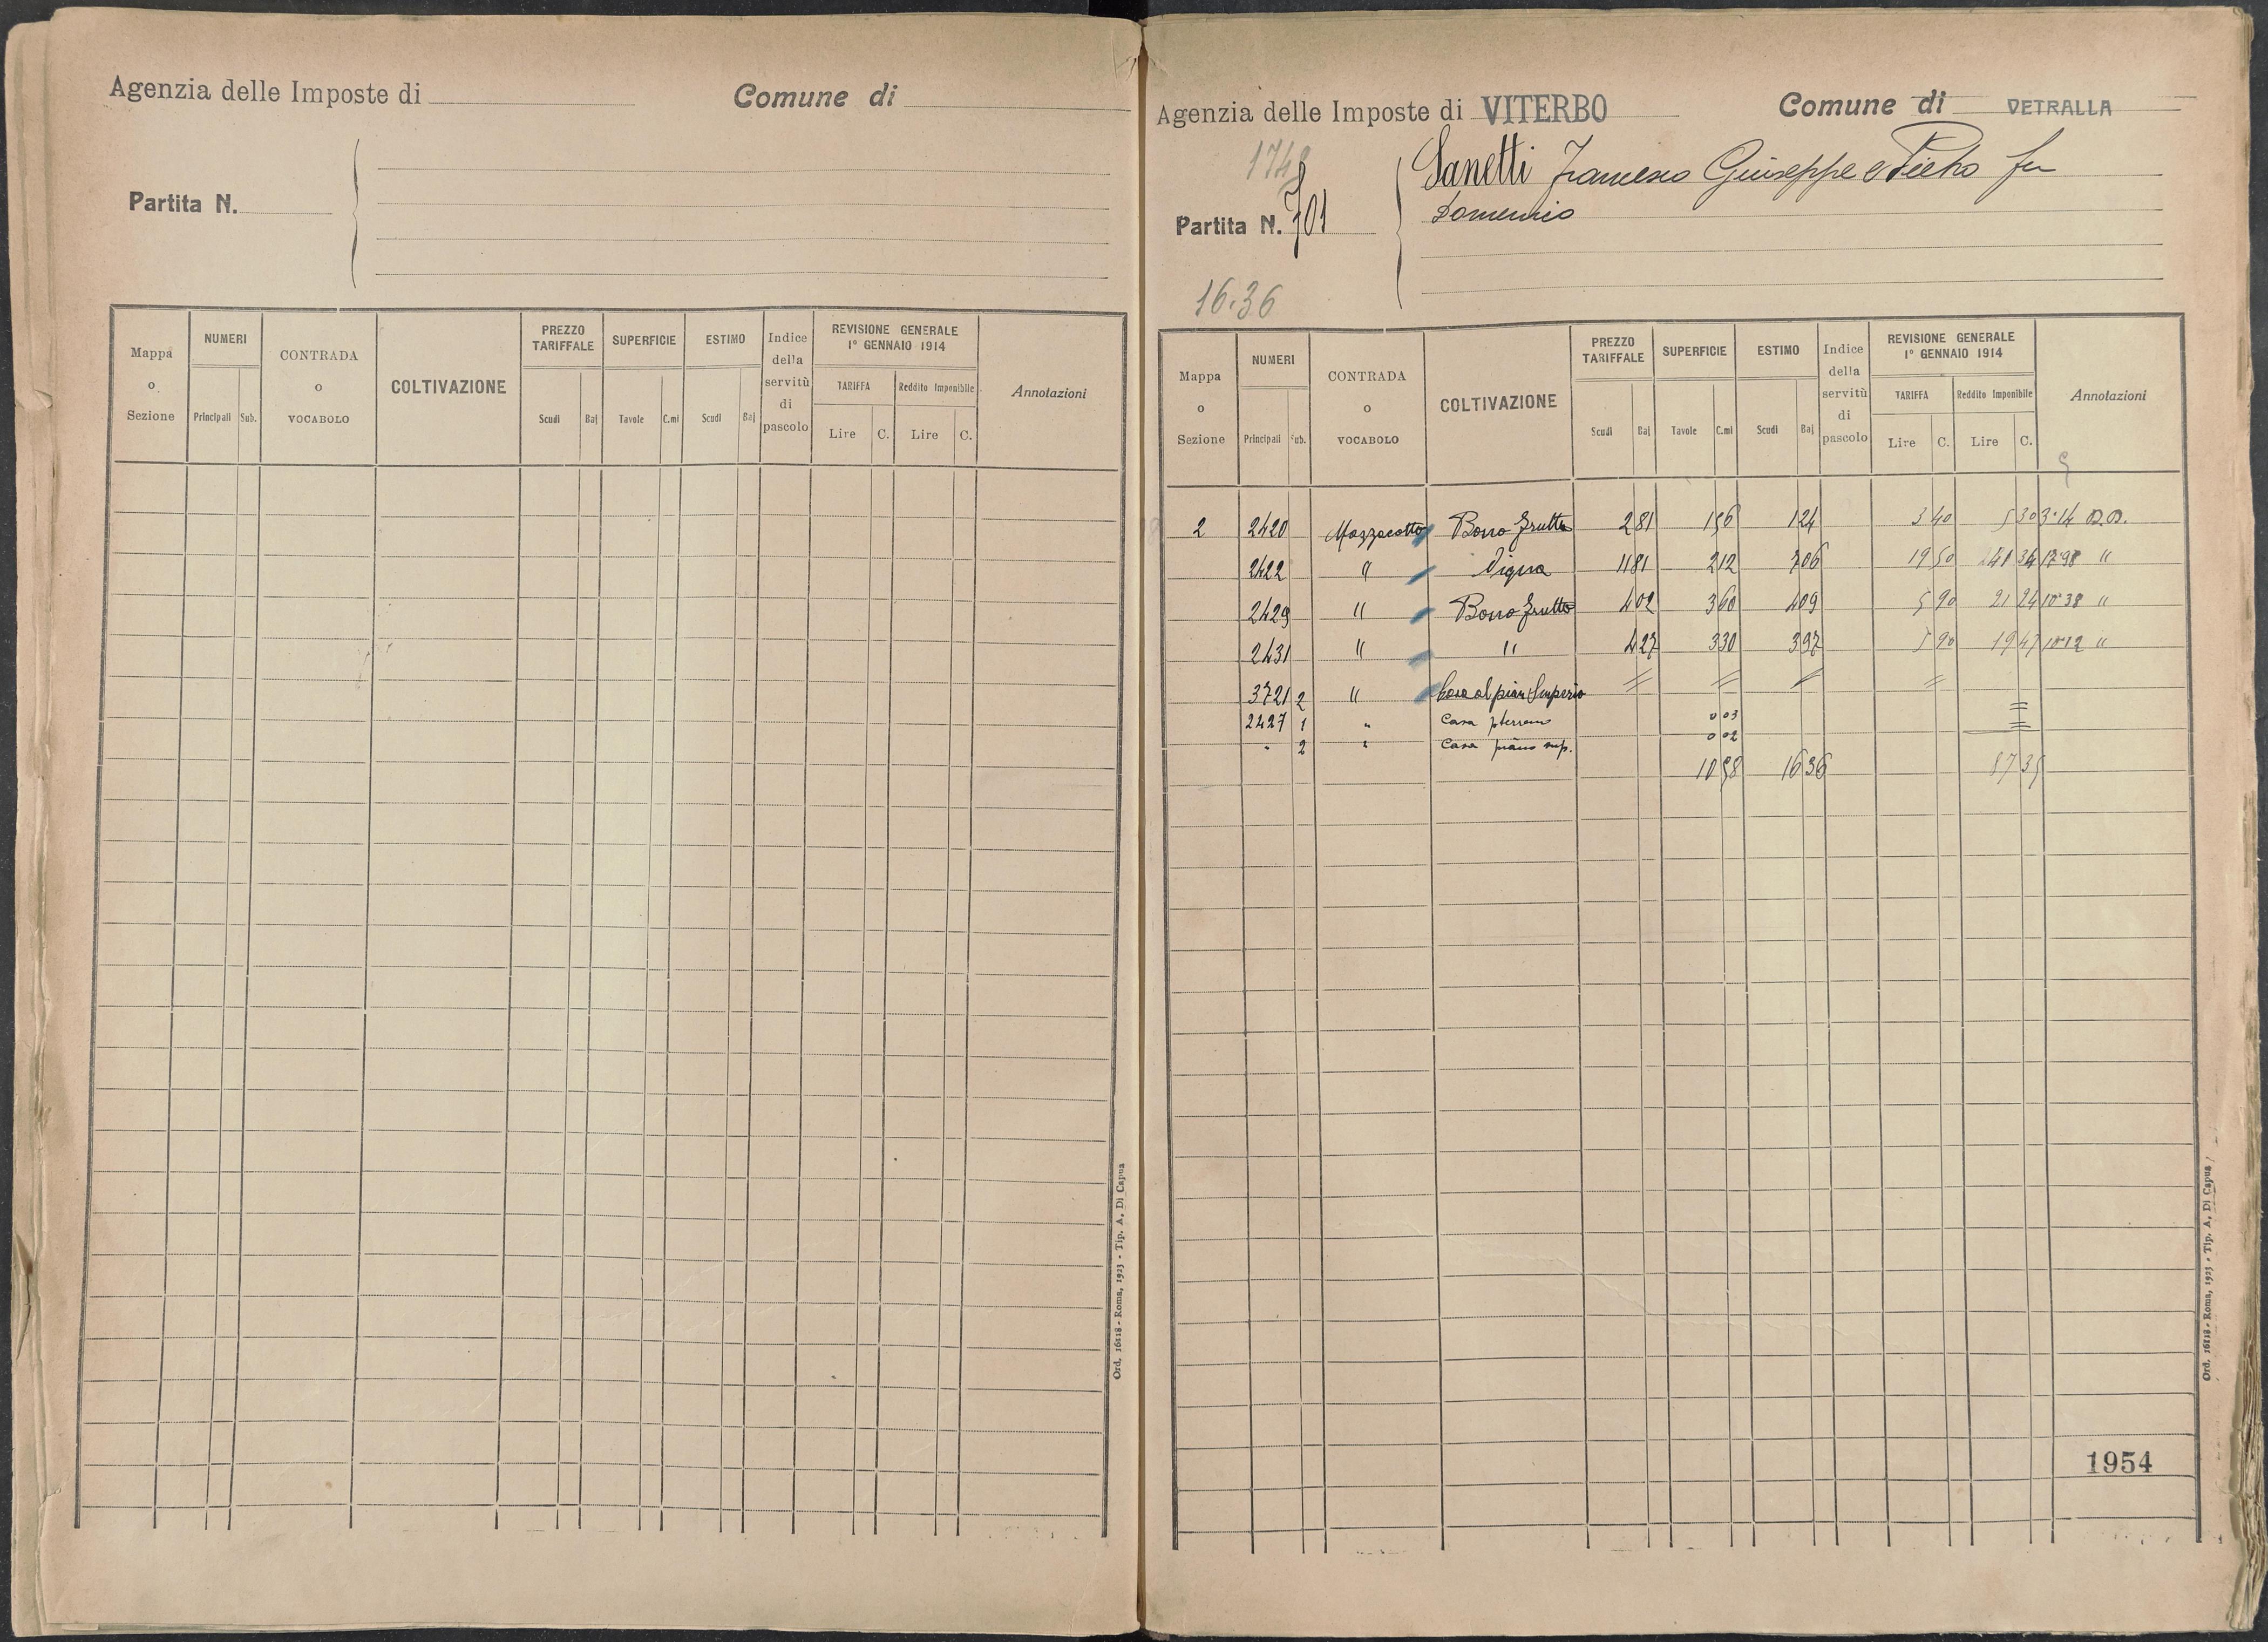 Agenzia delle Imposte di
Comune di
Partita N.
Mappa o Sezione
NUMERI
Principali Sub.
CONTRADA o VOCABOLO
COLTIVAZIONE
PREZZO TARIFFALE
Scudi Baj
SUPERFICIE
Tavole C.mi
ESTIMO
Scudi Baj
Indice della servitù di pascolo
REVISIONE GENERALE
1° GENNAIO 1914
TARIFFA
Lire C.
Reddito Imponibile
Lire C.
Annotazioni
Ord. 16118 - Roma, 1923 - Tip. A. Di Capua
Agenzia delle Imposte di VITERBO
Comune di VETRALLA
Partita N. 701
Sanetti Francesco Giuseppe e Pietro fu
Domenico
16.36
Mappa o Sezione
NUMERI
Principali Sub.
CONTRADA o VOCABOLO
COLTIVAZIONE
PREZZO TARIFFALE
Scudi Baj
SUPERFICIE
Tavole C.mi
ESTIMO
Scudi Baj
Indice della servitù di pascolo
REVISIONE GENERALE
1° GENNAIO 1914
TARIFFA
Lire C.
Reddito Imponibile
Lire C.
Annotazioni
2 2420 Mazzacotto 2 81 1 56 1 24 3 40 5 30 3.14
2422 " Vigna 11 81 2 12 7 06 19 50 41 34 17.98 "
2429 " 4 02 3 60 4 09 5 90 21 24 10.38 "
2431 " " 4 27 3 30 3 97 5 90 19 47 10.12 "
3721 2 "
2427 1 " Casa pterreno 0 03 =
" 2 " Casa piano sup. 0 02 =
10 58 16 36 87 35
1954
Ord. 16118 - Roma, 1923 - Tip. A. Di Capua